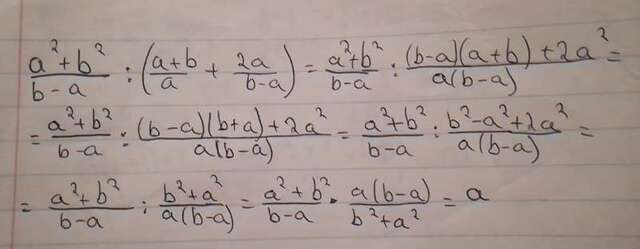 \frac{a^2+b^2}{b-a} : \left(\frac{a+b}{a} + \frac{2a}{b-a}\right) = \frac{a^2+b^2}{b-a} : \frac{(b-a)(a+b)+2a^2}{a(b-a)} =
= \frac{a^2+b^2}{b-a} : \frac{(b-a)(b+a)+2a^2}{a(b-a)} = \frac{a^2+b^2}{b-a} : \frac{b^2-a^2+2a^2}{a(b-a)} =
= \frac{a^2+b^2}{b-a} : \frac{b^2+a^2}{a(b-a)} = \frac{a^2+b^2}{b-a} \cdot \frac{a(b-a)}{b^2+a^2} = a